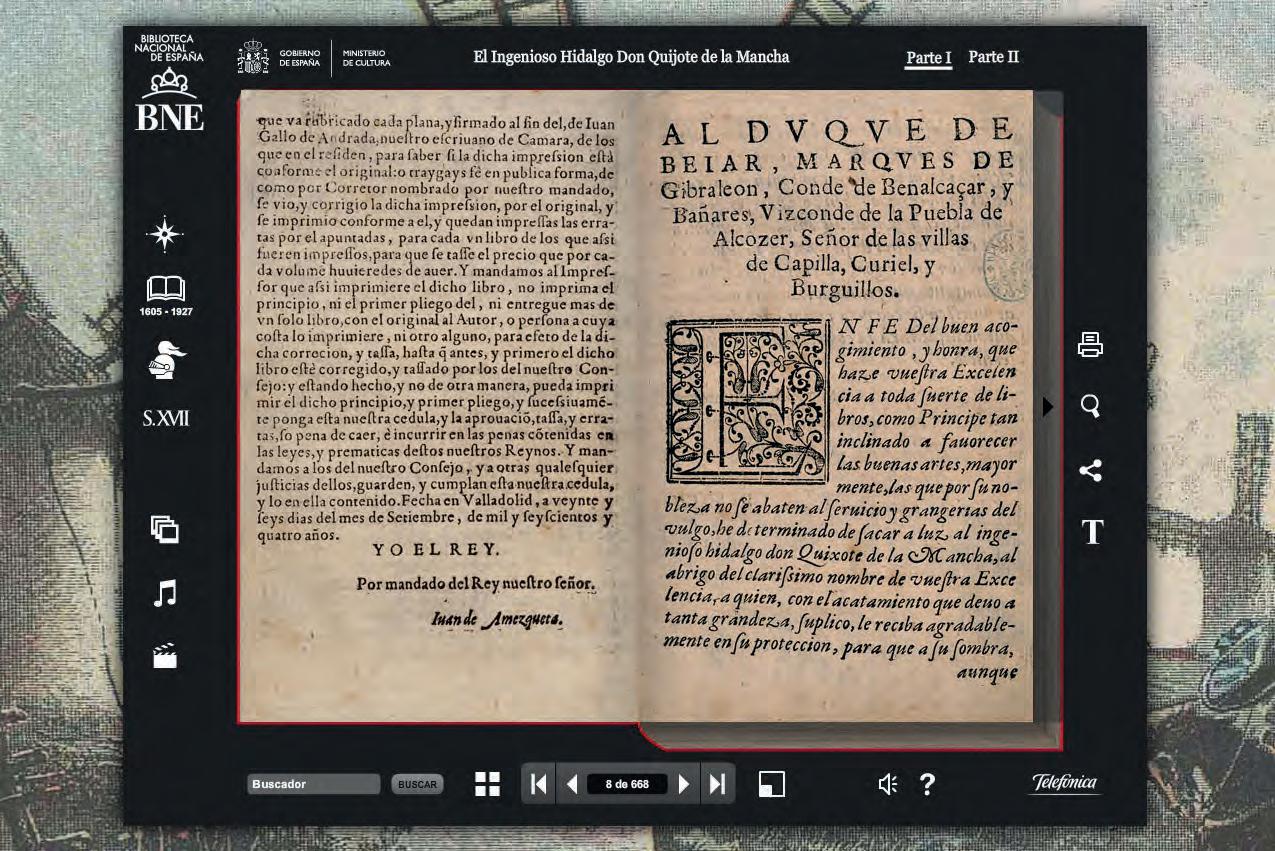 BIBLIOTECA
NACIONAL
DE ESPAÑA
BNE
GOBIERNO
DE ESPAÑA
MINISTERIO
DE CULTURA
El Ingenioso Hidalgo Don Quijote de la Mancha
Parte I
Parte II
1605 - 1927
S.XVII
que va rubricado cada plana,y firmado al fin del,de Iuan
Gallo de Andrada,nueſtro eſcriuano de Camara, de los
que en el reſiden, para ſaber ſi la dicha impreſsion eſtà
conforme el original:o traygays fè en publica forma,de
como por Corretor nombrado por nueſtro mandado,
ſe vio,y corrigio la dicha impreſsion, por el original, y
ſe imprimio conforme a el,y quedan impreſſas las erra-
tas por el apuntadas, para cada vn libro de los que aſsi
fueren impreſſos,para que ſe taſſe el precio que por ca-
da volumē huuieredes de auer. Y mandamos al Impreſ-
ſor que aſsi imprimiere el dicho libro, no imprima el
principio, ni el primer pliego del, ni entregue mas de
vn ſolo libro,con el original al Autor, o perſona a cuya
coſta lo imprimiere, ni otro alguno, para efeto de la di-
cha correcion, y taſſa, haſta q̃ antes, y primero el dicho
libro eſtè corregido,y taſſado por los del nueſtro Con-
ſejo:y eſtando hecho,y no de otra manera, pueda impri
mir el dicho principio,y primer pliego,y ſuceſsiuamē-
te ponga eſta nueſtra cedula,y la aprouaciō,taſſa,y erra-
tas,ſo pena de caer, è incurrir en las penas cōtenidas en
las leyes,y prematicas deſtos nueſtros Reynos. Y man-
damos a los del nueſtro Conſejo, y a otras qualeſquier
juſticias dellos,guarden, y cumplan eſta nueſtra cedula,
y lo en ella contenido.Fecha en Valladolid, a veynte y
ſeys dias del mes de Setiembre, de mil y ſeyſcientos y
quatro años.
YO EL REY.
Por mandado del Rey nueſtro ſeñor.
Iuan de Amezqueta.
AL DVQVE DE
BEIAR, MARQVES DE
Gibraleon, Conde de Benalcaçar, y
Bañares, Vizconde de la Puebla de
Alcozer, Señor de las villas
de Capilla, Curiel, y
Burguillos.
EN FE Del buen aco-
gimiento, y honra, que
haze vueſtra Excelen
cia a toda ſuerte de li-
bros, como Principe tan
inclinado a fauorecer
las buenas artes, mayor
mente,las que por ſu no-
bleza no ſe abaten al ſeruicio y grangerias del
vulgo,he determinado de ſacar a luz al inge-
nioſo hidalgo don Quixote de la Mancha, al
abrigo del clariſsimo nombre de vueſtra Exce
lencia, a quien, con el acatamiento que deuo a
tanta grandeza, ſuplico, le reciba agradable-
mente en ſu proteccion, para que a ſu ſombra,
aunque
T
Buscador
BUSCAR
8 de 668
?
Telefónica